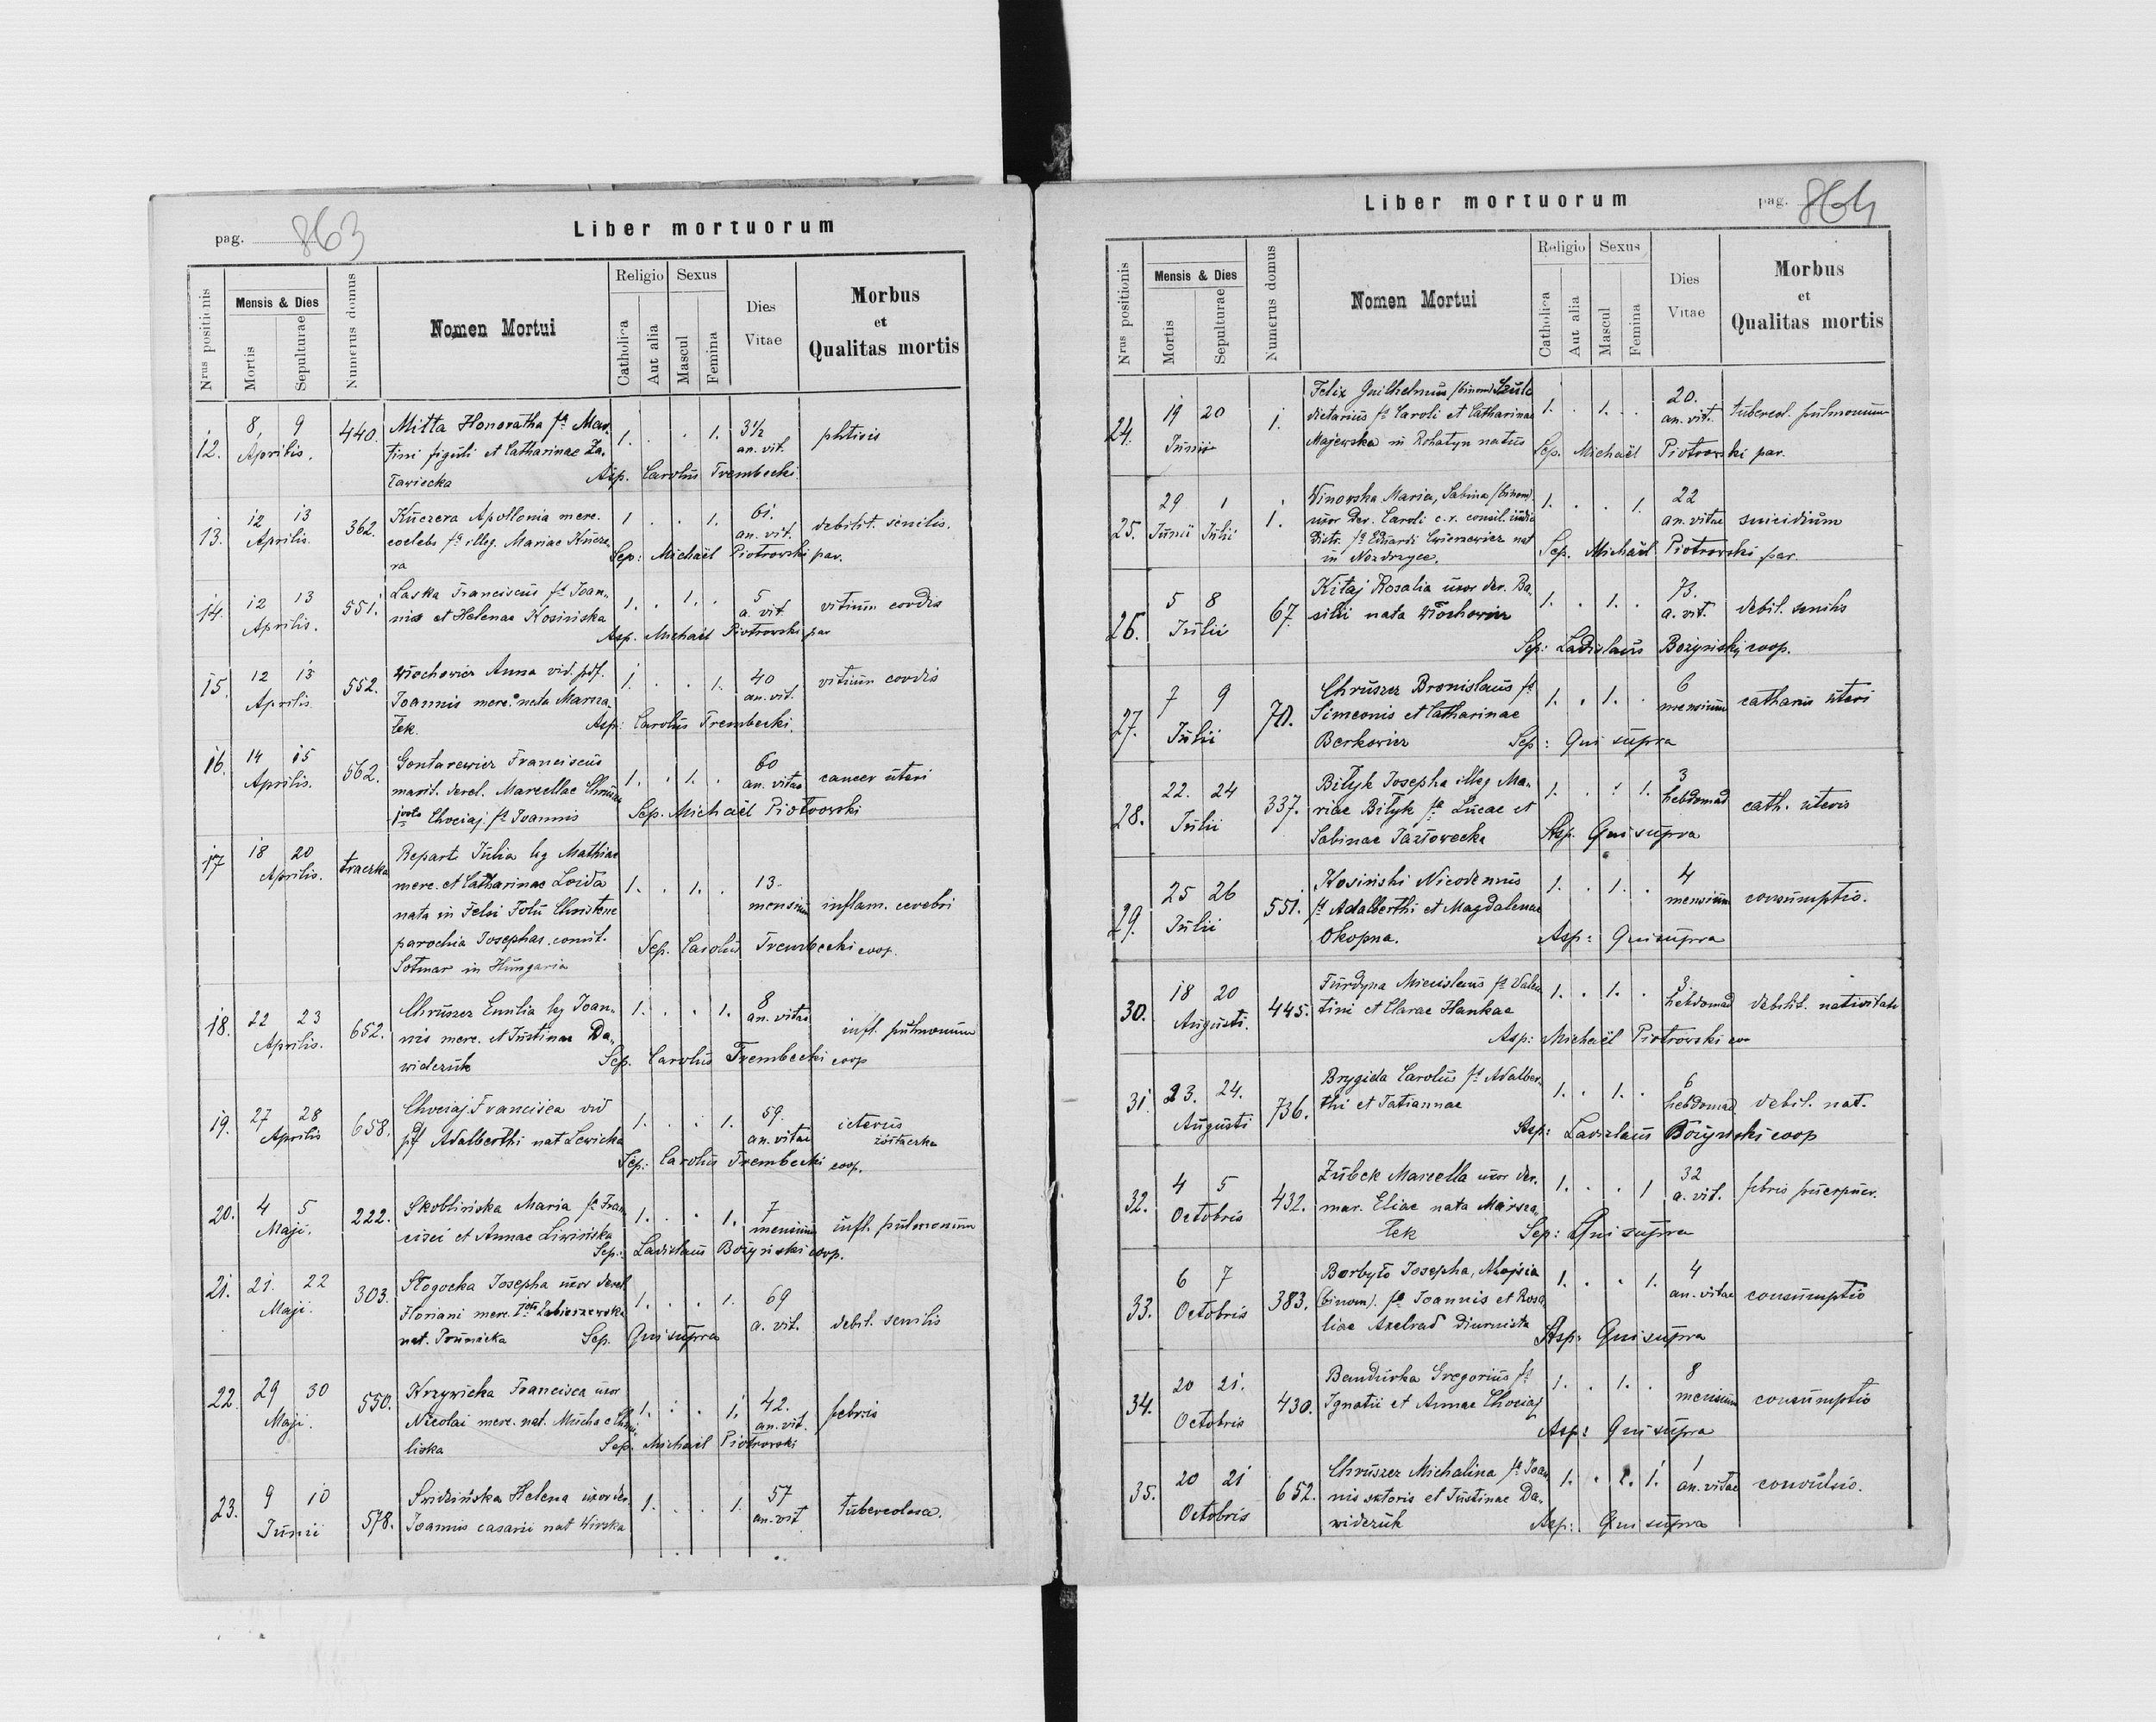 pag. 863
Liber mortuorum
Nrus positionis
Mensis & Dies
Mortis
Sepulturae
Numerus domus
Nomen Mortui
Religio
Catholica
Aut alia
Sexus
Mascul
Femina
Dies Vitae
Morbus et Qualitas mortis
12. 8 9 Aprilis. 440. Mitta Honoratha fa Mar- 1. . . 1. 3 1/2 an. vit. phtisis
tini figuli et Catharinae Za-
ławiecka Asp. Carolus Trembecki
13. 12 13 Aprilis. 362. Kuczera Apollonia merc. 1 . . 1. 61. an. vit. debilit. senilis.
coelebs fa illeg. Mariae Kucze-
ra Sep: Michaël Piotrowski par.
14. 12 13 Aprilis. 551. Laska Franciscus fs Joan- 1. . 1. . 5 a. vit vitium cordis
nis et Helenae Kosińska
Asp. Michaël Piotrowski par
15. 12 13 Aprilis. 552. Włochowicz Anna vid. pdf. 1. . . 1. 40 an. vit. vitium cordis
Joannis merc. nata Marsza-
łek. Asp: Carolus Trembecki.
16. 14 15 Aprilis. 562. Gontarewicz Franciscus 1. . 1. . 60 an. vitae cancer uteri
marit. derel. Marcellae
Chociaj fs Joannis Sep. Michaël Piotrowski
17 18 20 Aprilis. traczka Repart Julia leg Mathiae
merc. et Catharinae Loida 1. . 1. . 13. mensium inflam. cerebri
nata in Felsi
parochia Josephas. comit. Sep. Carolus Trembecki coop.
Sotmar in Hungaria
18. 22 23 Aprilis. 652. Chruszcz Emilia leg Joan- 1. . . 1. 8 an. vitae infl. pulmonum
nis merc. et Justinae Da-
widczuk Sep. Carolus Trembecki coop
19. 27 28 Aprilis 658. Chociaj Francisca vid 1. . . 1. 59. an. vitae icterus
pdf Adalberthi nat Lewicka żółtaczka
Sep: Carolus Trembecki coop.
20. 4 5 Maji. 222. Skoblińska Maria fa Fran- 1. . . 1. 7 mensium infl. pulmonum
cisci et Annae Liwińska
Sep: Ladislaus Bożyński coop.
21. 21. 22 Maji. 303. Stogocka Josepha uxor derel.
Floriani merc. 1. . . 1. 69 a. vit. debil. senilis
nat. Sep. Qui supra
22. 29 30 Maji. 550. Krzywicka Francisca uxor 1. . . 1. 42. an. vit. febris
Nicolai merc. nat. Mucha
liska Sep. Michaël Piotrowski
23. 9 10 Junii 578. Swidzińska Helena uxor der. 1. . . 1. 57 an. vit tuberculosa.
Joannis casarii nat Wirska
Liber mortuorum
pag. 864
Nrus positionis
Mensis & Dies
Mortis
Sepulturae
Numerus domus
Nomen Mortui
Religio
Catholica
Aut alia
Sexus
Mascul
Femina
Dies Vitae
Morbus et Qualitas mortis
24. 19 20 Junii 1. Felix Guilhelmus (binom) Szulc 1. . 1. . 20. an. vit. tubercul. pulmonum
dietarius fs Caroli et Catharinae
Majewska in Rohatyn natus Sep. Michaël Piotrowski par.
25. 29 1 Junii Julii 1. Winowska Maria, Sabina (binom). 1. . . 1. 22 an. vitae suicidium
uxor der. Caroli c. r. consil. iudic
distr. fa Eduardi nat
in Nozdrzyce. Sep. Michaël Piotrowski par.
26. 5 8 Julii 67. Kitaj Rosalia uxor der. Ba- 1. . 1. . 73. a. vit. debil. senilis
silii nata Włochowicz
Sep: Ladislaus Bożyński, coop.
27. 7 9 Julii 70. Chruszcz Bronislaus fs 1. . 1. . 6 mensium catharus uteri
Simeonis et Catharinae
Berkowicz Sep: Qui supra
28. 22. 24 Julii 337. Bilyk Josepha illeg Ma- 1. . . 1. 3 hebdomad cath. uteris
riae Bilyk fa Lucae et
Sabinae Jazłowecka Asp. Qui supra
29. 25 26 Julii 551. Kosiński Nicodemus 1. . 1. . 4 mensium consumptio.
fs Adalberthi et Magdalenae
Okopna. Asp: Qui supra
30. 18 20 Augusti. 445. Furdyna Miecislaus fs Valen 1. . 1. . 3. hebdomad debilit. nativitatis
tini et Clarae Hankae
Asp: Michaël Piotrowski
31. 23. 24. Augusti 736. Brygida Carolus fs Adalber- 1. . 1. . 6 hebdomad debil. nat.
thi et Tatiannae
Asp: Ladislaus Bożyński coop
32. 4 5 Octobris 432. Zubek Marcella uxor der. 1. . . 1 32 a. vit. febris puerpuer.
mar. Eliae nata Marsza-
łek Sep: Qui supra
33. 6 7 Octobris 383. Borbyło Josepha, Aloysia 1. . . 1. 4 an. vitae consumptio
(binom). fa Joannis et Rosa
liae Axelrad diurnista Asp: Qui supra
34. 20 21. Octobris 430. Bandurka Gregorius fs 1. . 1. . 8 mensium consumptio
Ignatii et Annae Chociaj
Asp: Qui supra
35. 20 21 Octobris 652. Chruszcz Michalina fa Joan 1. . . 1. 1 an. vitae convulsio.
nis sutoris et Justinae Da-
widczuk Asp: Qui supra